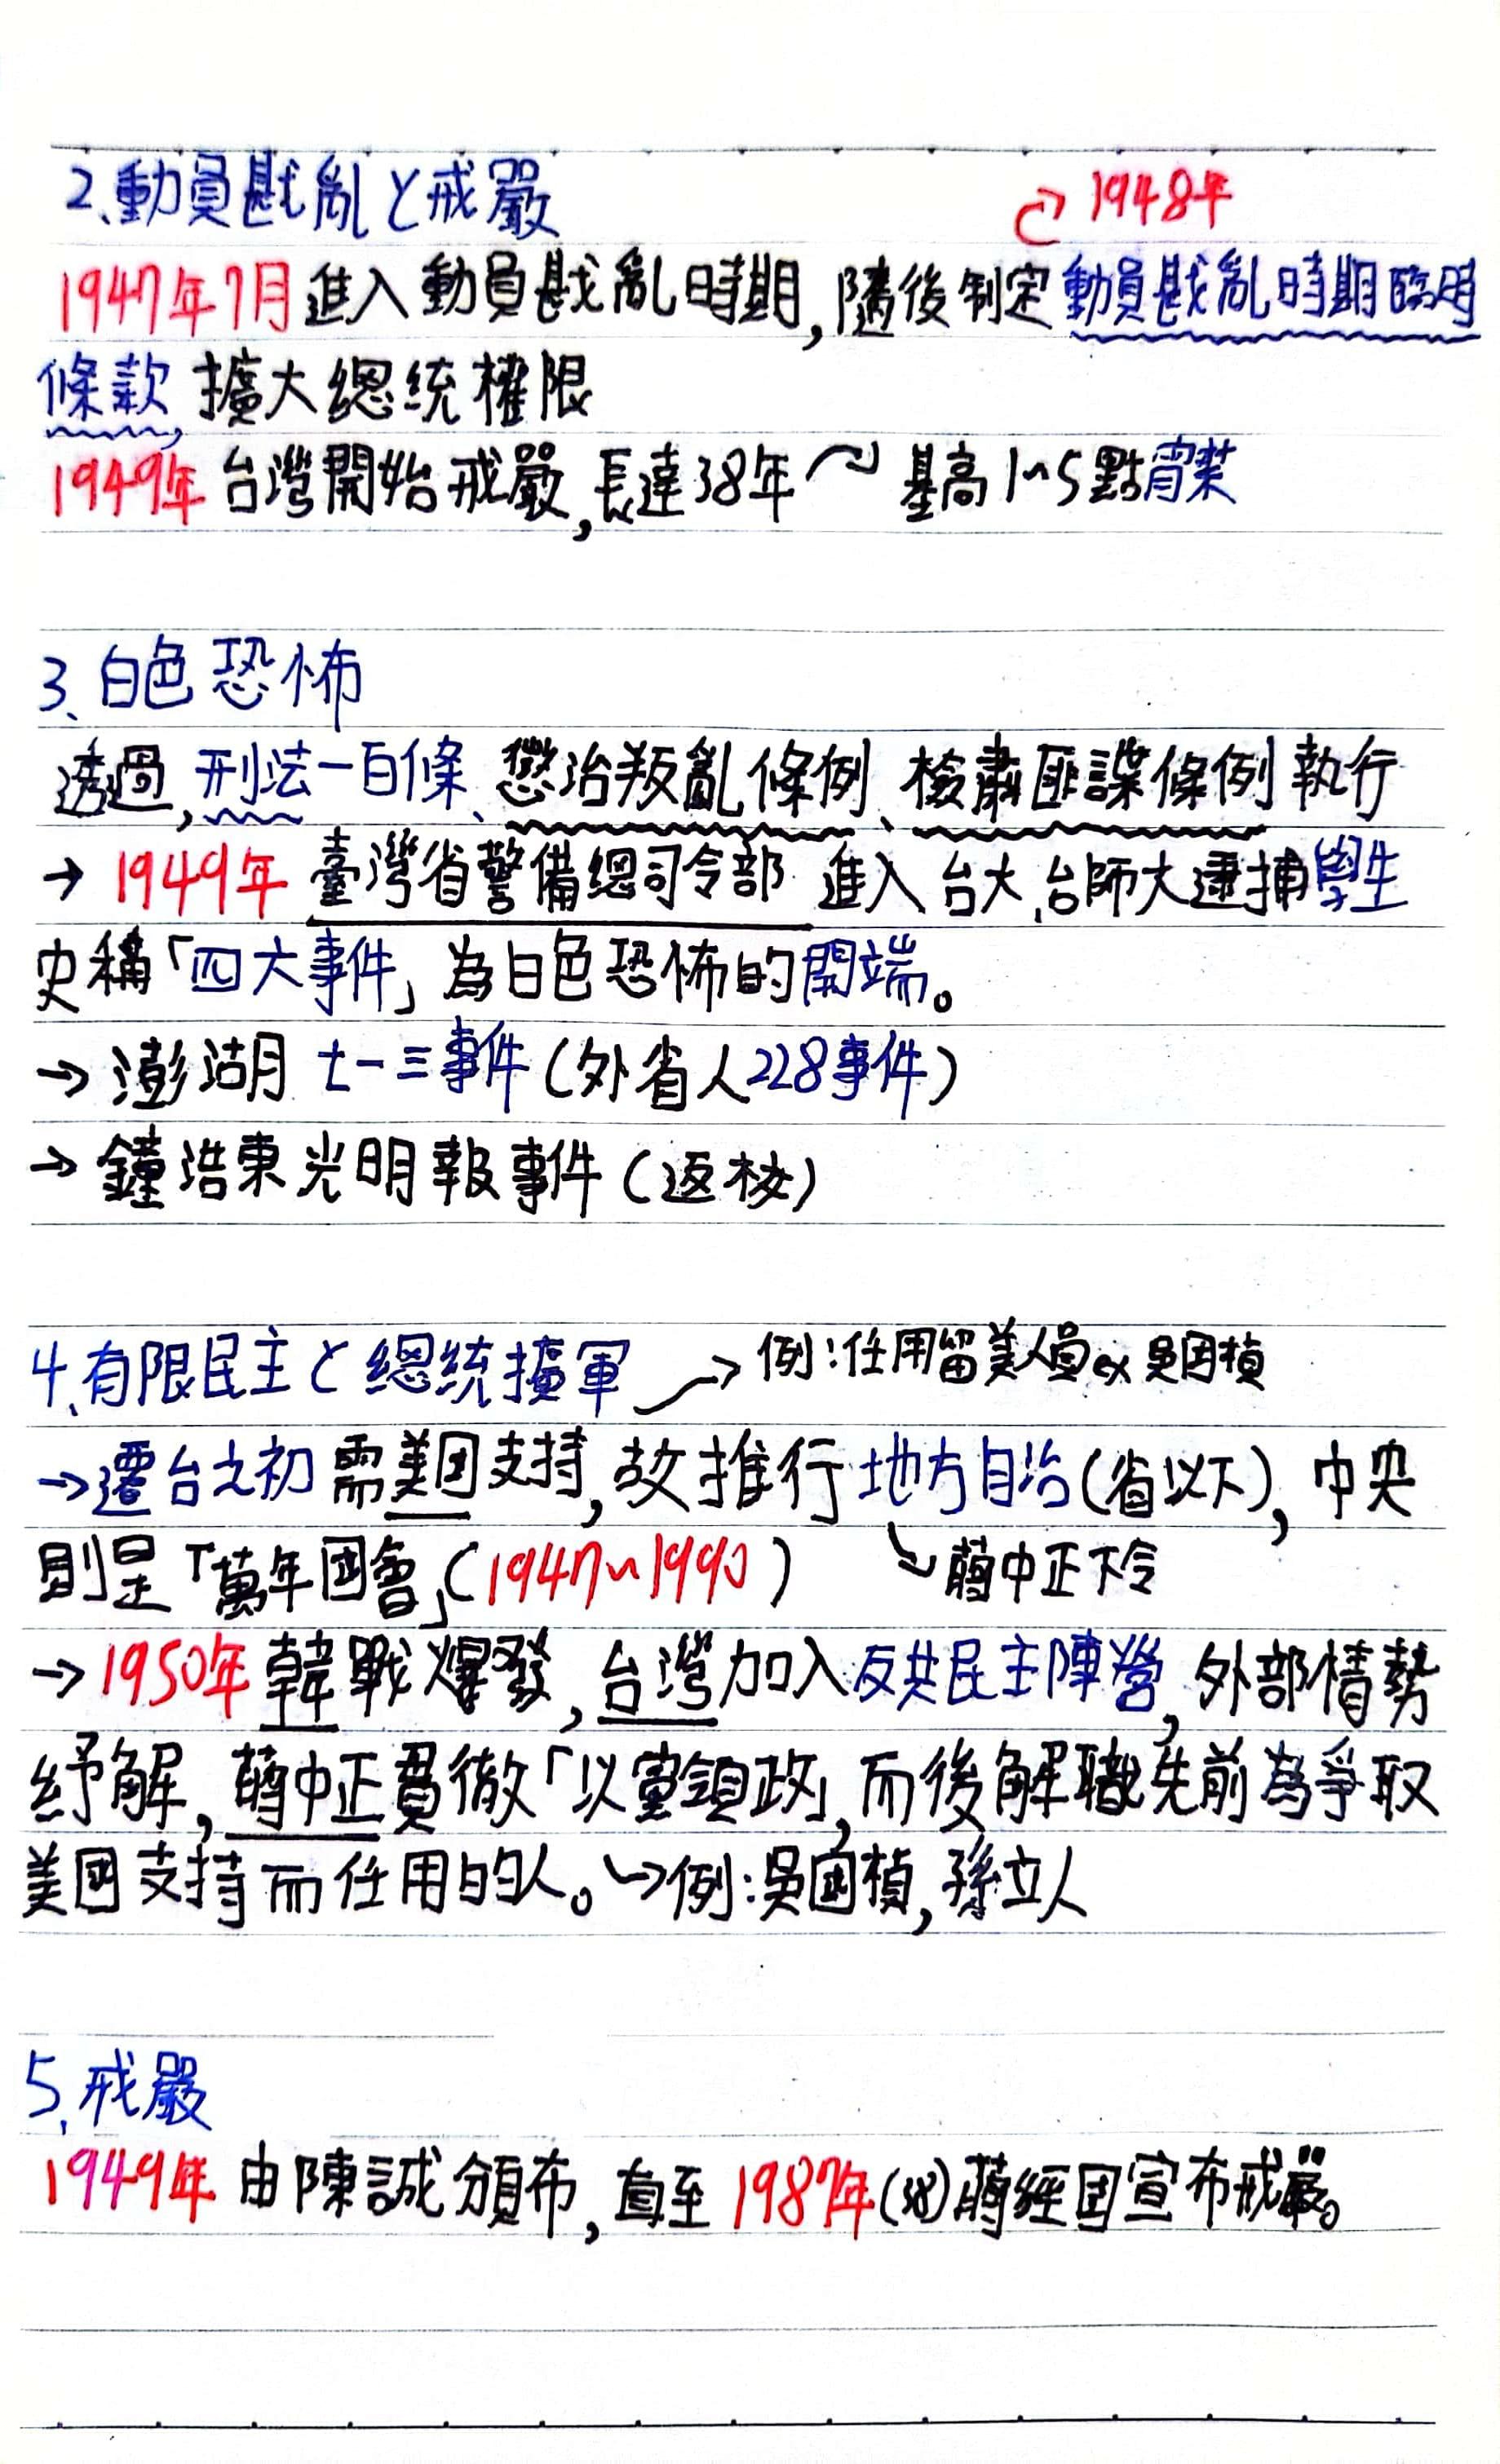 2、動員戡亂と戒嚴
1948年
1947年7月進入動員戡亂時期,隨後制定動員戡亂時期臨時
條款,擴大總統權限
1949年台灣開始戒嚴,長達38年 基高1~5點宵禁
3、白色恐怖
透過,刑法一百條、懲治叛亂條例、檢肅匪諜條例執行
→1949年 臺灣省警備總司令部 進入台大,台師大逮捕學生
史稱「四六事件」為白色恐怖的開端。
→澎湖七一三事件(外省人228事件)
→鐘浩東光明報事件(返校)
4、有限民主と總統擴軍 → 例:任用留美人員ex吳国楨
→遷台之初需美国支持,故推行地方自治(省以下),中央
則是「萬年國會」(1947~1990) 蔣中正下令
→1950年韓戰爆發,台灣加入反共民主陣營,外部情勢
紓解,蔣中正貫徹「以黨領政」,而後解職先前為爭取
美國支持而任用的人。→例:吳國楨,孫立人
5、戒嚴
1949年由陳誠頒布,直至1987年(38)蔣經国宣布戒嚴。